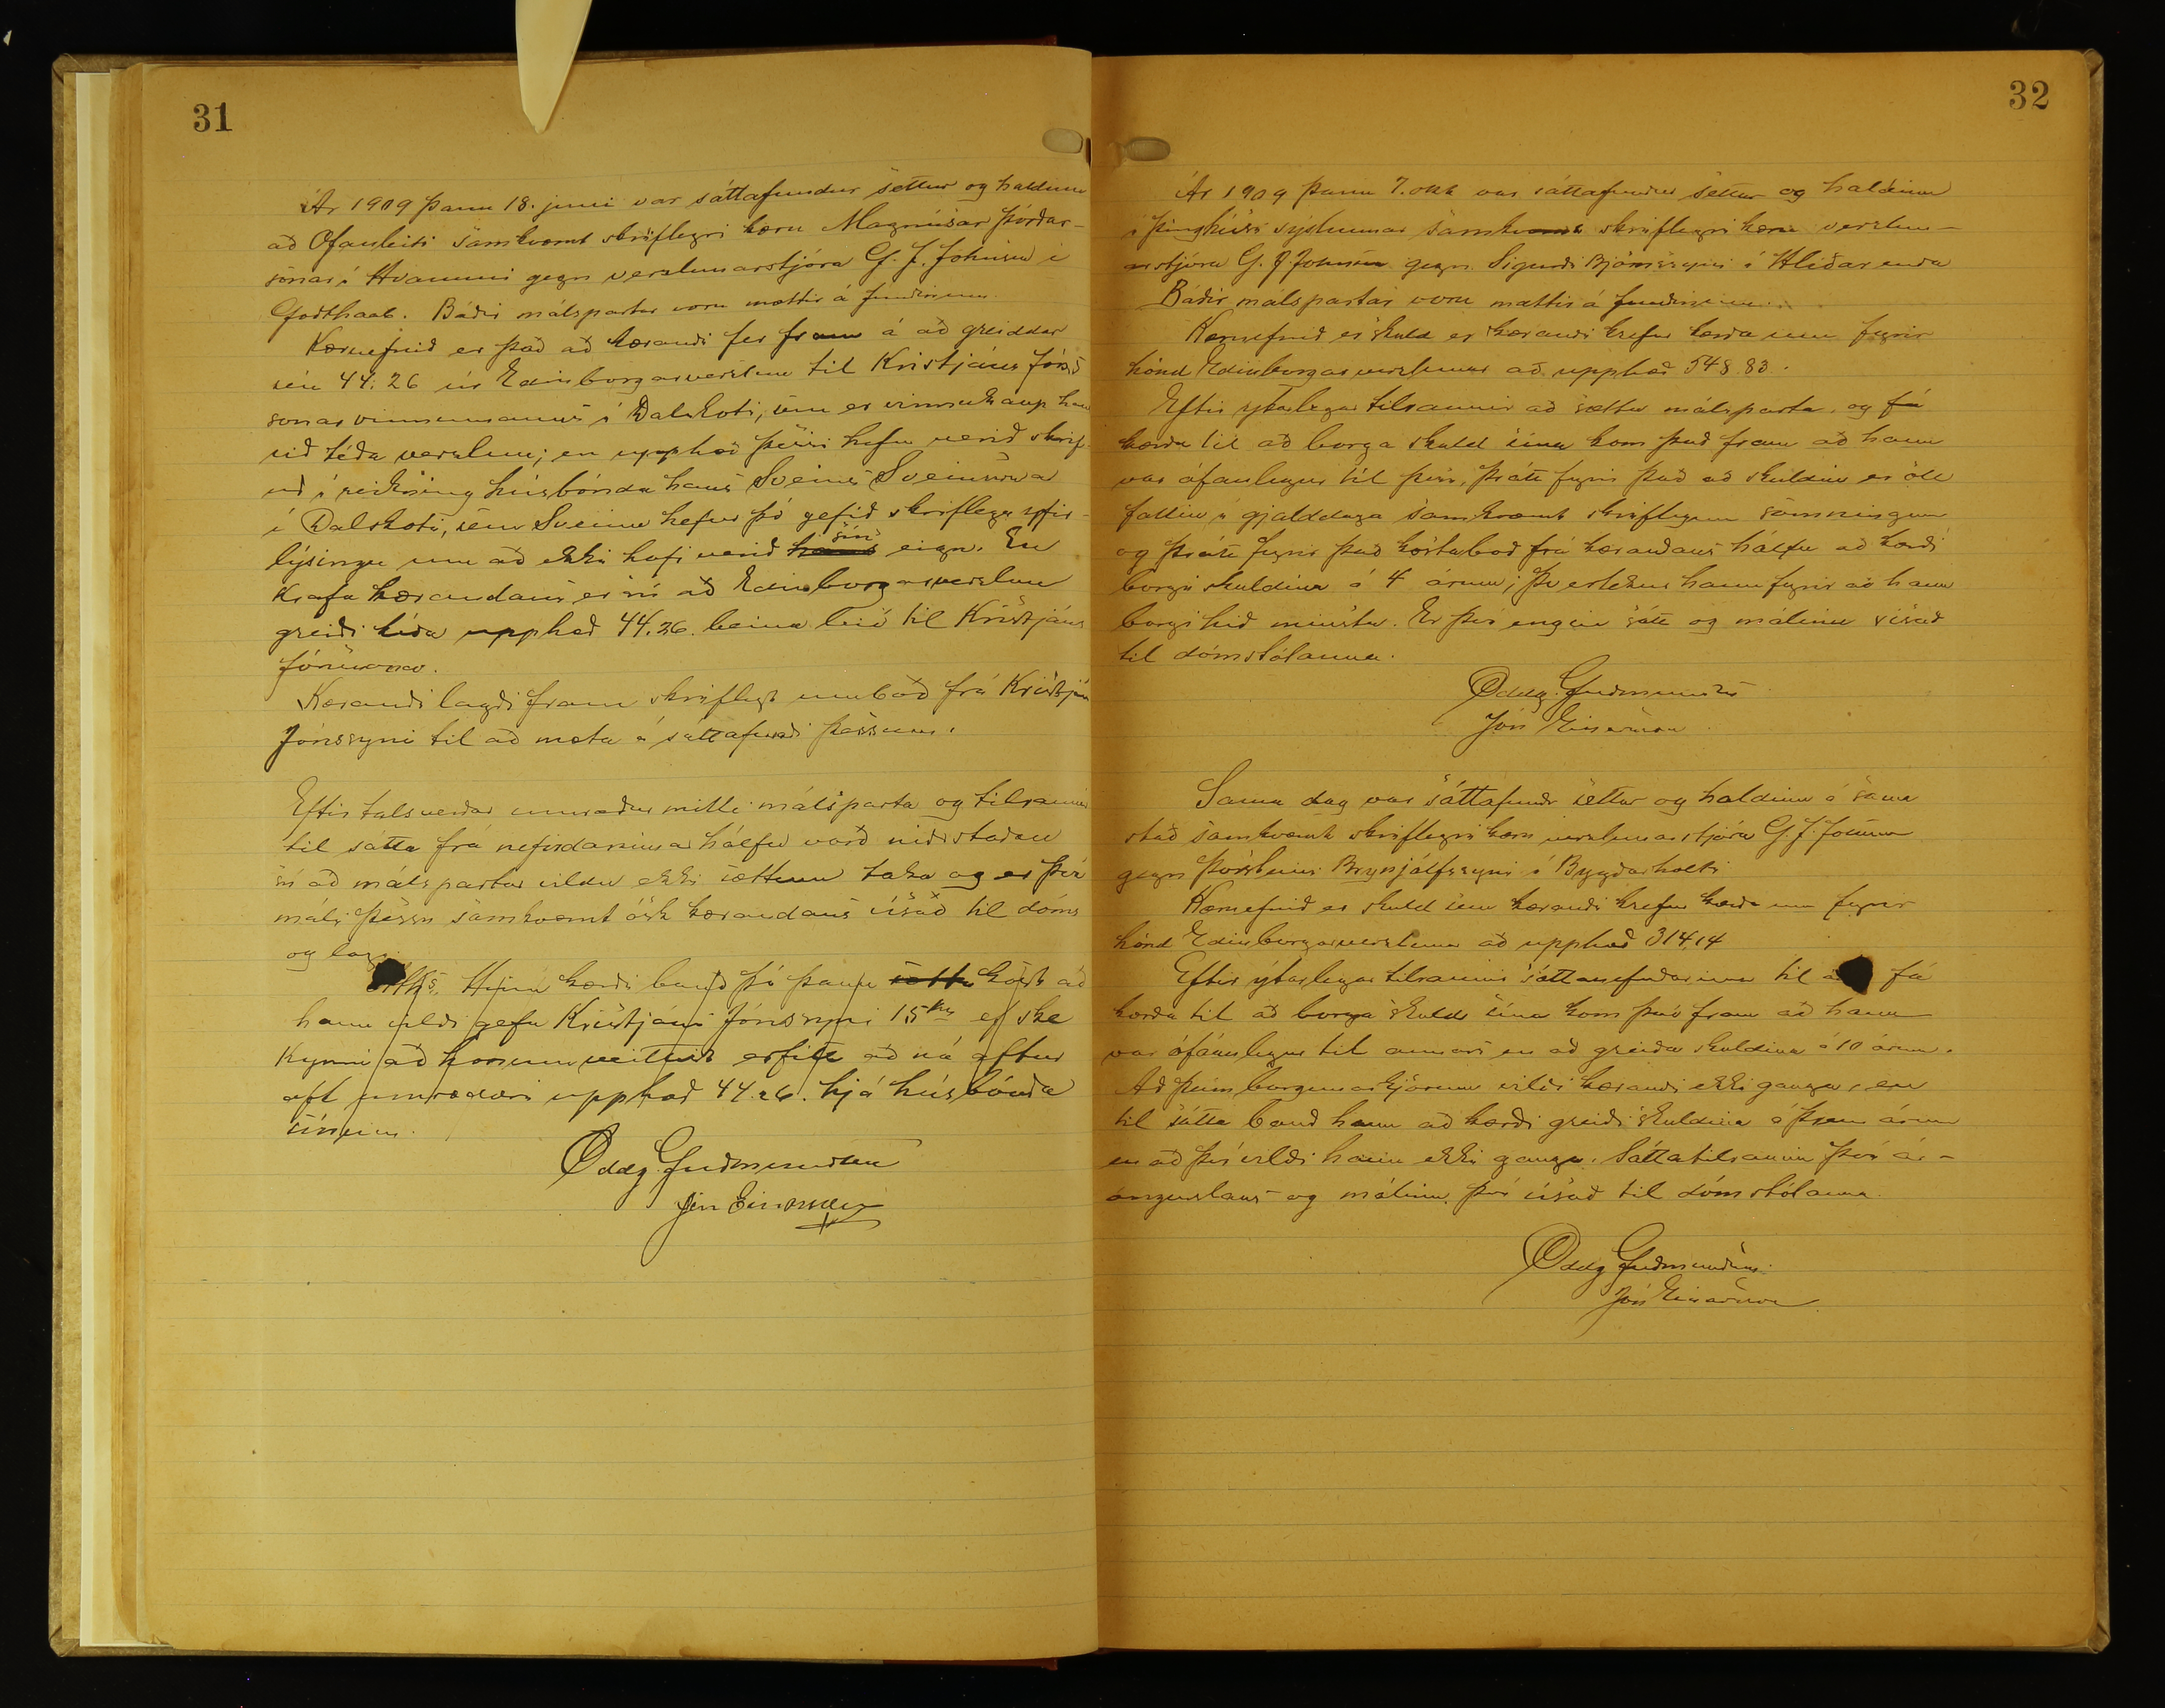 31
Ár 1909 þann 18. júni var sáttafundur settur og haldinn
að Ofanleiti samkvæmt skriflegri kæru Magnúsar Þórðar-
sonar í Hvammi gegn verzlunarstjóra G. J. Johnsen í
Godthaab. Báðir málspartar voru mættir á fundinum.
Kæruefnið er það að kærandi fer fram á að greiddar
séu 44.26 úr Edinborgarverzlun til Kristjáns Jóns-
sonar vinnumanns í Dalakoti, sem er vinnukaup hans
við téða verzlun; en upphæð þessi hefur verið skrif-
uð í reikning húsbónda hans Sveins Sveinssonar
í Dalskoti, sem Sveinn hefur þó gefið skriflega yfir-
lýsingu um að ekki hafi verið hans sín eign. En
Krafa kærandans er sú að Edinborgarverzlun
greiði téða upphæð 44.26. beina leið til Kristjáns
Jónssonar.
Kærandi lagði fram skriflegt umboð frá Kristjáni
Jónssyni til að mæta á sáttafundi þessum.
Eftir talsverðar umræður milli málsparta og tilraunir
til sátta frá nefndarinnar hálfu varð niðurstaðan
sú að málspartar vildu ekki sættum taka og er því
máli þessu samkvæmt ósk kærandans vísað til dóms
og laga
Aths. Hinn kærði bauð þó þann sætta kost að
hann vildi gefa Kristjáni Jónssyni 15 kr ef ske
kynni að honum veittist erfitt að ná aftur
oft umræddri upphæð 44.26. hjá húsbónda
sínum.
Oddg. Guðmundsen
Jón Einarsson
32
Ár 1909 þann 7. okt var sáttafundur settur og haldinn
í þinghúsi sýslunnar samkvæmt skriflegri kæru verzlun-
arstjóra G. J. Johnsen gegn Sigurði Björnssyni í Hlíðarenda
Báðir málspartar voru mættir á fundinum.
Kæruefnið er skuld er kærandi krefur kærða um fyrir
hönd Edinborgarverzlunar að upphæð 548.83.
Eftir ýtarlegar tilraunir að sætta málsparta, og fá
kærða til að borga skuld sína kom það fram að hann
var ófáanlegur til þess, þrátt fyrir það að skuldin er öll
fallin í gjalddaga samkvæmt skriflegum samningum
og þrátt fyrir það kostaboð frá kærandans hálfu að kærði
borgi skuldina á 4 árum; Þvertekur hann fyrir að hann
borgi hið minsta. Er því engin sátt og málinu vísað
til dómstólanna.
Oddg. Guðmundsen
Jón Einarsson
Sama dag var sáttafundr settur og haldinn á sama
stað samkvæmt skriflegri kæru verzlunarstjóra G. J. Johnsen
gegn Þorsteini Brynjólfssyni í Byggðarholti
Kæruefnið er skuld sem kærandi krefur kærða um fyrir
hönd Edinborgarverzlunar að upphæð 314,14
Eftir ýtarlegar tilraunir sáttanefndarinnar til að fá
kærða til að borga skuld sína kom það fram að hann
var ófáanlegur til annars en að greiða skuldina á 10 árum.
Að þeim borgunarkjörum vildi kærandi ekki ganga, en
til sátta bauð hann að kærði greiði skuldina á þrem árum
en að því vildi hann ekki ganga. Sáttatilraunin því ár-
angurslaus og málinu því vísað til dómstólanna.
Oddg Guðmundsen
Jón Einarsson